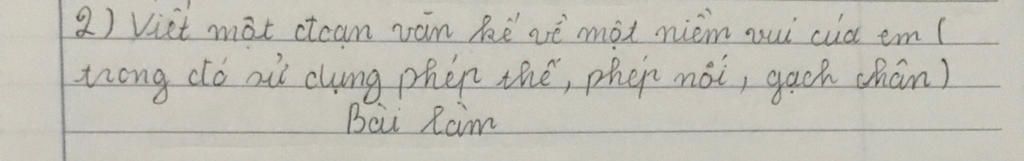 2) Viết một đoạn văn kể về một niềm vui của em (
trong đó sử dụng phép thế, phép nối, gạch chân)
Bài làm